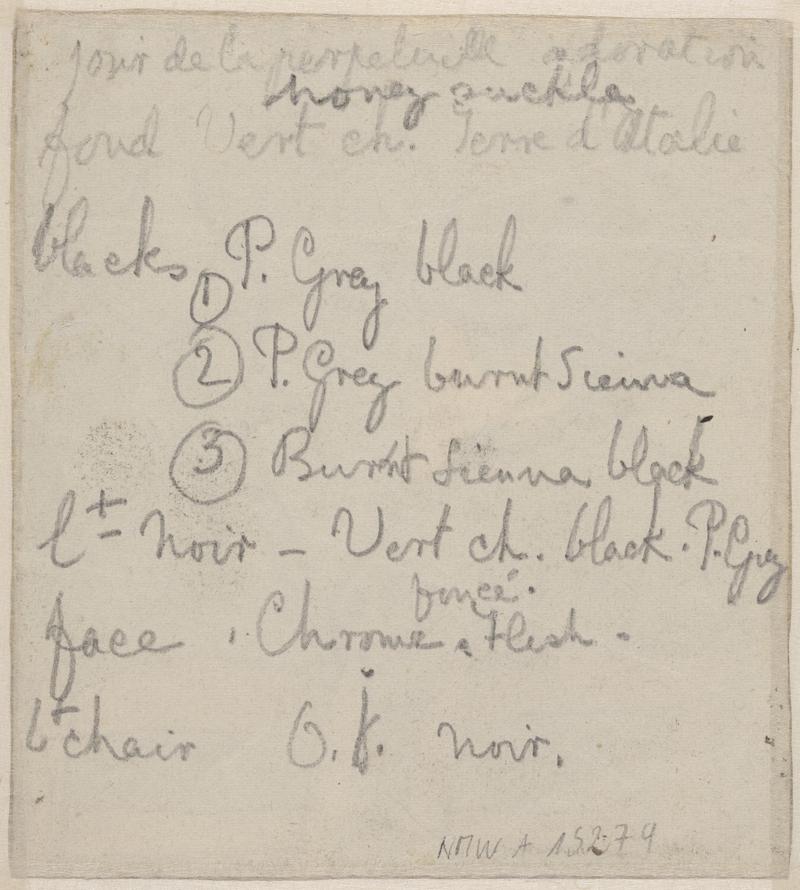 jour de la perpetuelle adoration
honey suckle
fond Vert ch. Terre d'Italie
blacks P. Grey black
①
② P. Grey burnt Sienna
③ Burnt Sienna black
noir – Vert ch. black. P. Grey
foncé.
face . Chrome . Flesh .
chair O. J. noir.
NMW A 15279